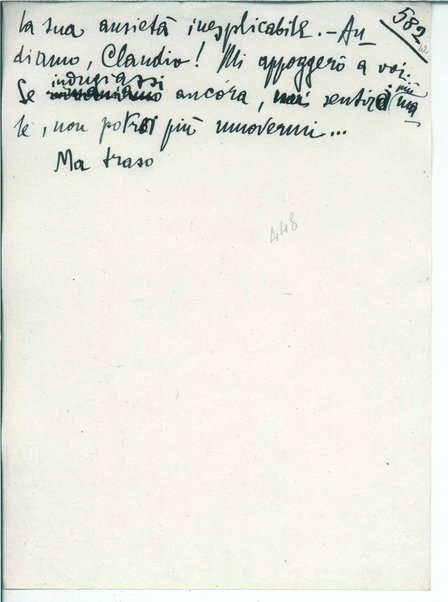 582
la sua ansietà inesplicabile. – An
diamo, Claudio! Mi appoggerò a voi.
Se indugiassi ancóra, mi sentirei più ma
le, non potrei più muovermi...
Ma traso
448